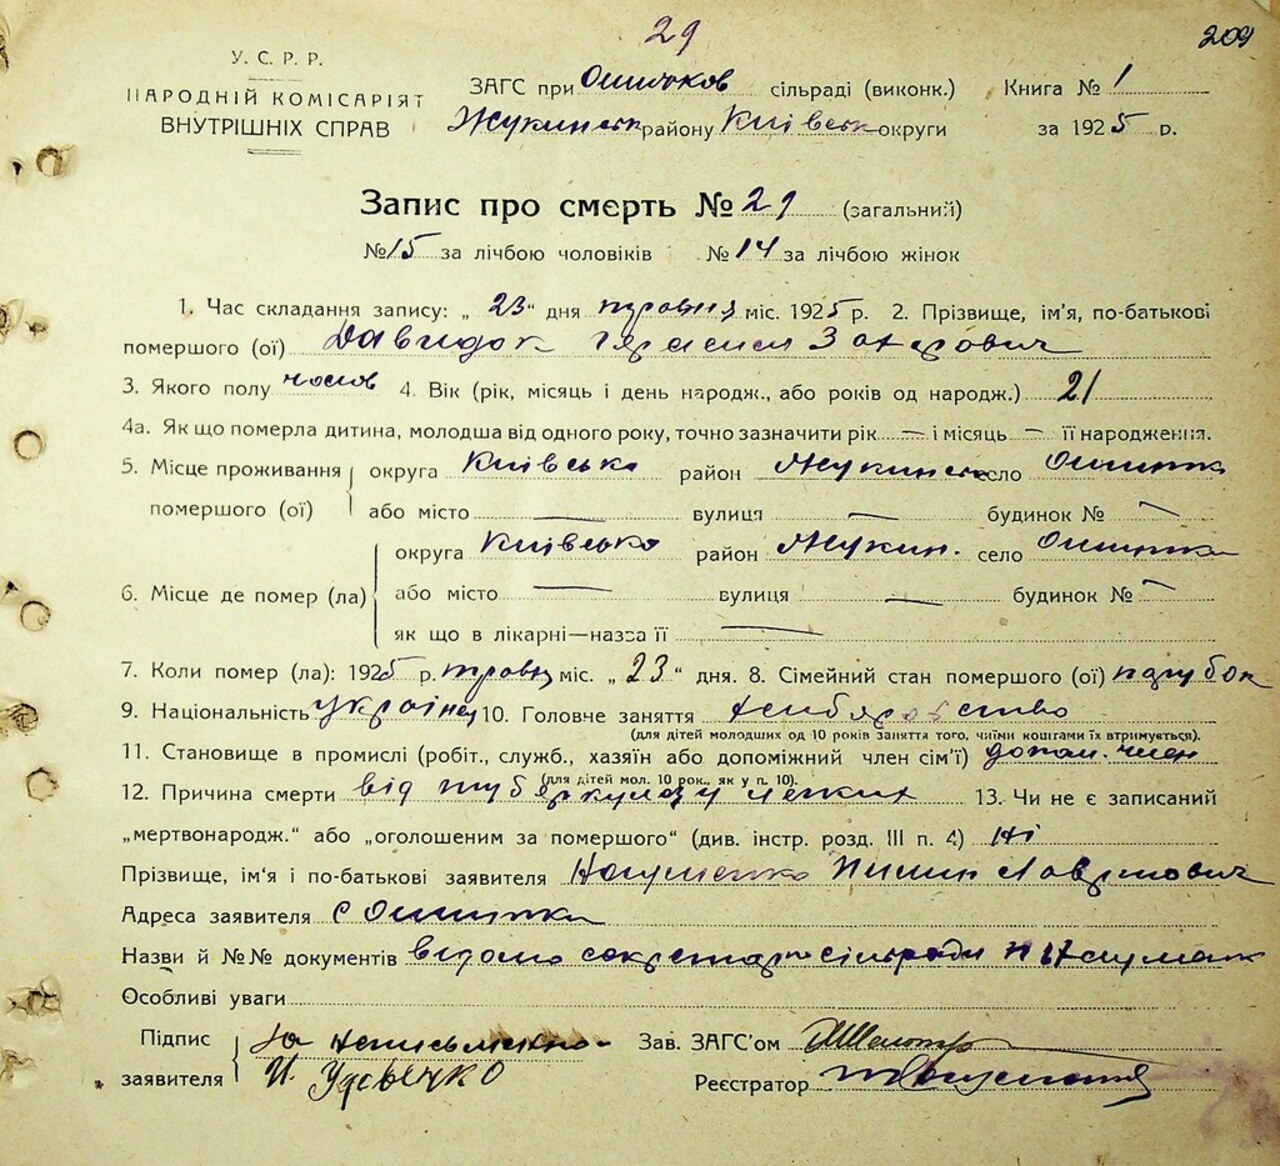 29
209
У. С. Р. Р.
НАРОДНІЙ КОМІСАРІЯТ
ВНУТРІШНІХ СПРАВ
ЗАГС при Ошитков сільраді (виконк.) Книга № 1
Жукинськ району Київськ округи за 1925 р.
Запис про смерть № 29 (загальний)
№ 15 за лічбою чоловіків № 14 за лічбою жінок
1. Час складання запису: „ 23 “ дня травня міс. 1925 р. 2. Прізвище, ім'я, по-батькові
помершого (ої) Давидок Герасим Захарович
3. Якого полу чолов 4. Вік (рік, місяць і день народж., або років од народж.) 21
4а. Як що померла дитина, молодша від одного року, точно зазначити рік — і місяць — її народження.
5. Місце проживання помершого (ої) округа Київська район Жукинськ село Ошитки
або місто — вулиця — будинок № —
6. Місце де помер (ла) округа Київська район Жукин. село Ошитки
або місто — вулиця — будинок № —
як що в лікарні—назва її —
7. Коли помер (ла): 1925 р. травня міс. „ 23 “ дня. 8. Сімейний стан помершого (ої) парубок
9. Національність українец 10. Головне заняття хліборобство
(для дітей молодших од 10 років заняття того, чиїми коштами їх втримується).
11. Становище в промислі (робіт., служб., хазяїн або допоміжний член сім'ї) допом. член
(для дітей мол. 10 рок., як у п. 10).
12. Причина смерти від туберкулозу легких 13. Чи не є записаний
„мертвонародж.“ або „оголошеним за помершого“ (див. інстр. розд. III п. 4) Ні
Прізвище, ім'я і по-батькові заявителя Науменко Пимин Лавринович
Адреса заявителя с Ошитки
Назви й №№ документів відомо секретарю сільради
Особливі уваги
Підпис заявителя За неписьменно-
И. Удовенко
Зав. ЗАГС'ом
Реєстратор